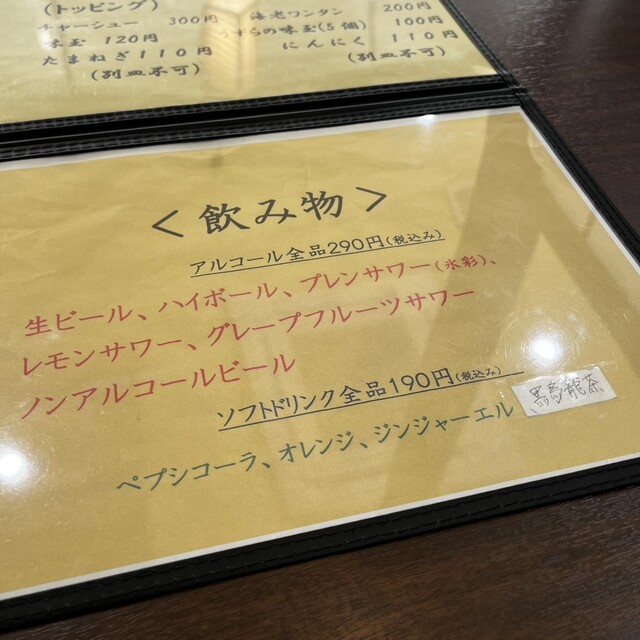 (トッピング)
チャーシュー 300円
海老ワンタン 200円
味玉 120円
うずらの味玉(5個) 100円
たまねぎ110円
にんにく 110円
(別皿不可)
(別皿不可)
<飲み物>
アルコール全品290円(税込み)
生ビール、ハイボール、プレンサワー(氷彩)、
レモンサワー、グレープフルーツサワー
ノンアルコールビール
ソフトドリンク全品190円(税込み)
ペプシコーラ、オレンジ、ジンジャーエル
黒烏龍茶